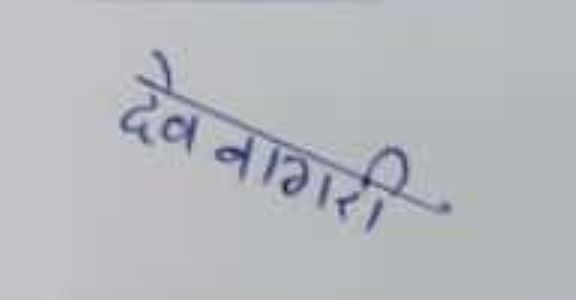 देव नागरी